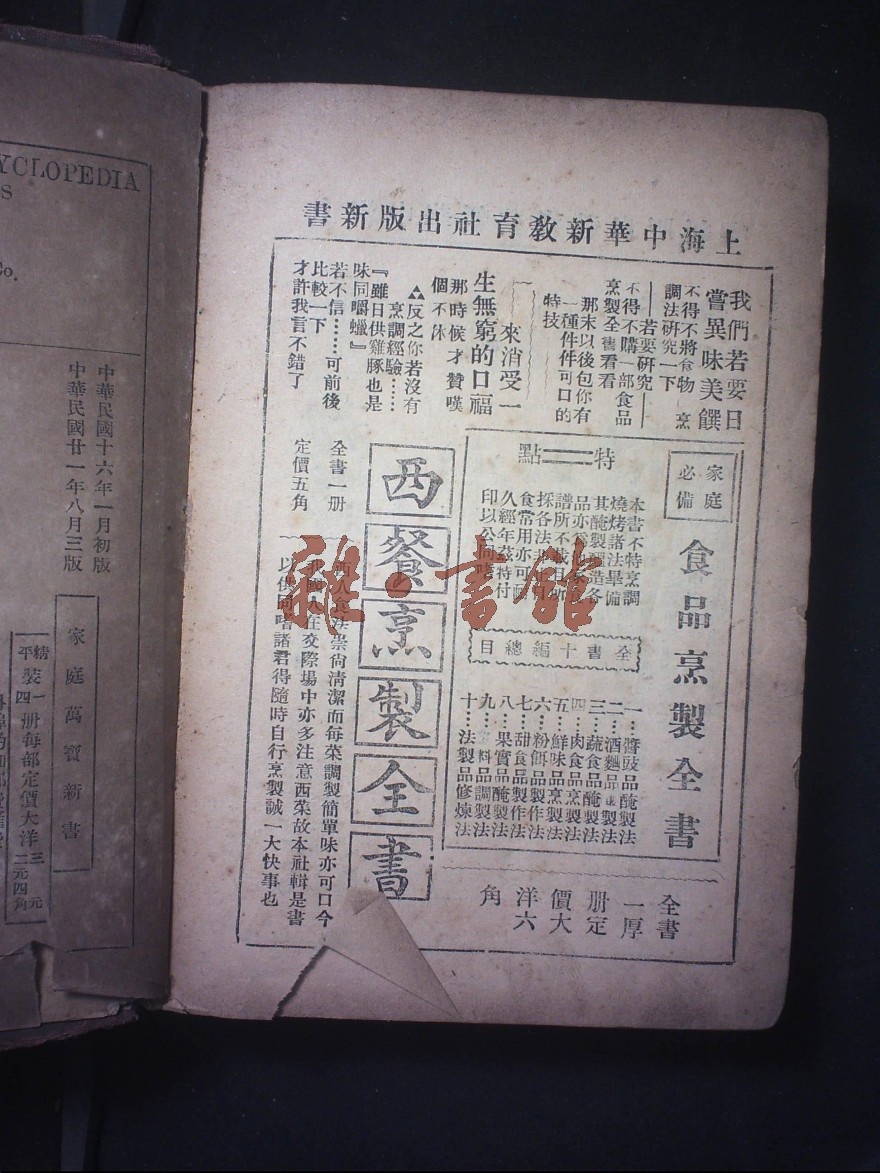 上海中華新教育社出版新書
我們若要日
嘗異味美饌
不得不將食物烹
調法研究一下
——若要研究——
不得不購一部食品
烹製全書看看
那末以後包你有
一種件件可口的
特技
來消受一
生無窮的口福
那時候才贊嘆
個不休
反之你若沒有
烹調經驗……
『雖日供雞豚也是
味同嚼蠟』
若不信……可前後
比較一下
才許我言不錯了
家庭
必備
食品烹製全書
特點
本書不特烹調
燒烤諸法畢備
其醃製釀造各
品亦
譜所不載
採各法
食常用亦可
久經年茲特付
印以公同嗜
全書十編總目
一…醬豉品醃製法
二…酒麵品製法
三…蔬食品醃製法
四…肉食品烹製法
五…鮮味品烹製法
六…粉餌品製作法
七…甜食品製作法
八…果實品醃製法
九…料品調製法
十…法製品修煉法
全書
一厚
册定
價大
洋六
角
西餐烹製全書
全書一册
定價五角
西人食法崇尚清潔而每菜調製簡單味亦可口今
我國人在交際場中亦多注意西菜故本社輯是書
以供同嗜諸君得隨時自行烹製誠一大快事也
YCLOPEDIA
S
Co.
中華民國十六年一月初版
中華民國廿一年八月三版
家庭萬寶新書
精裝一册每部定價大洋三元
平裝四册每部定價大洋二元四角
雜·書館